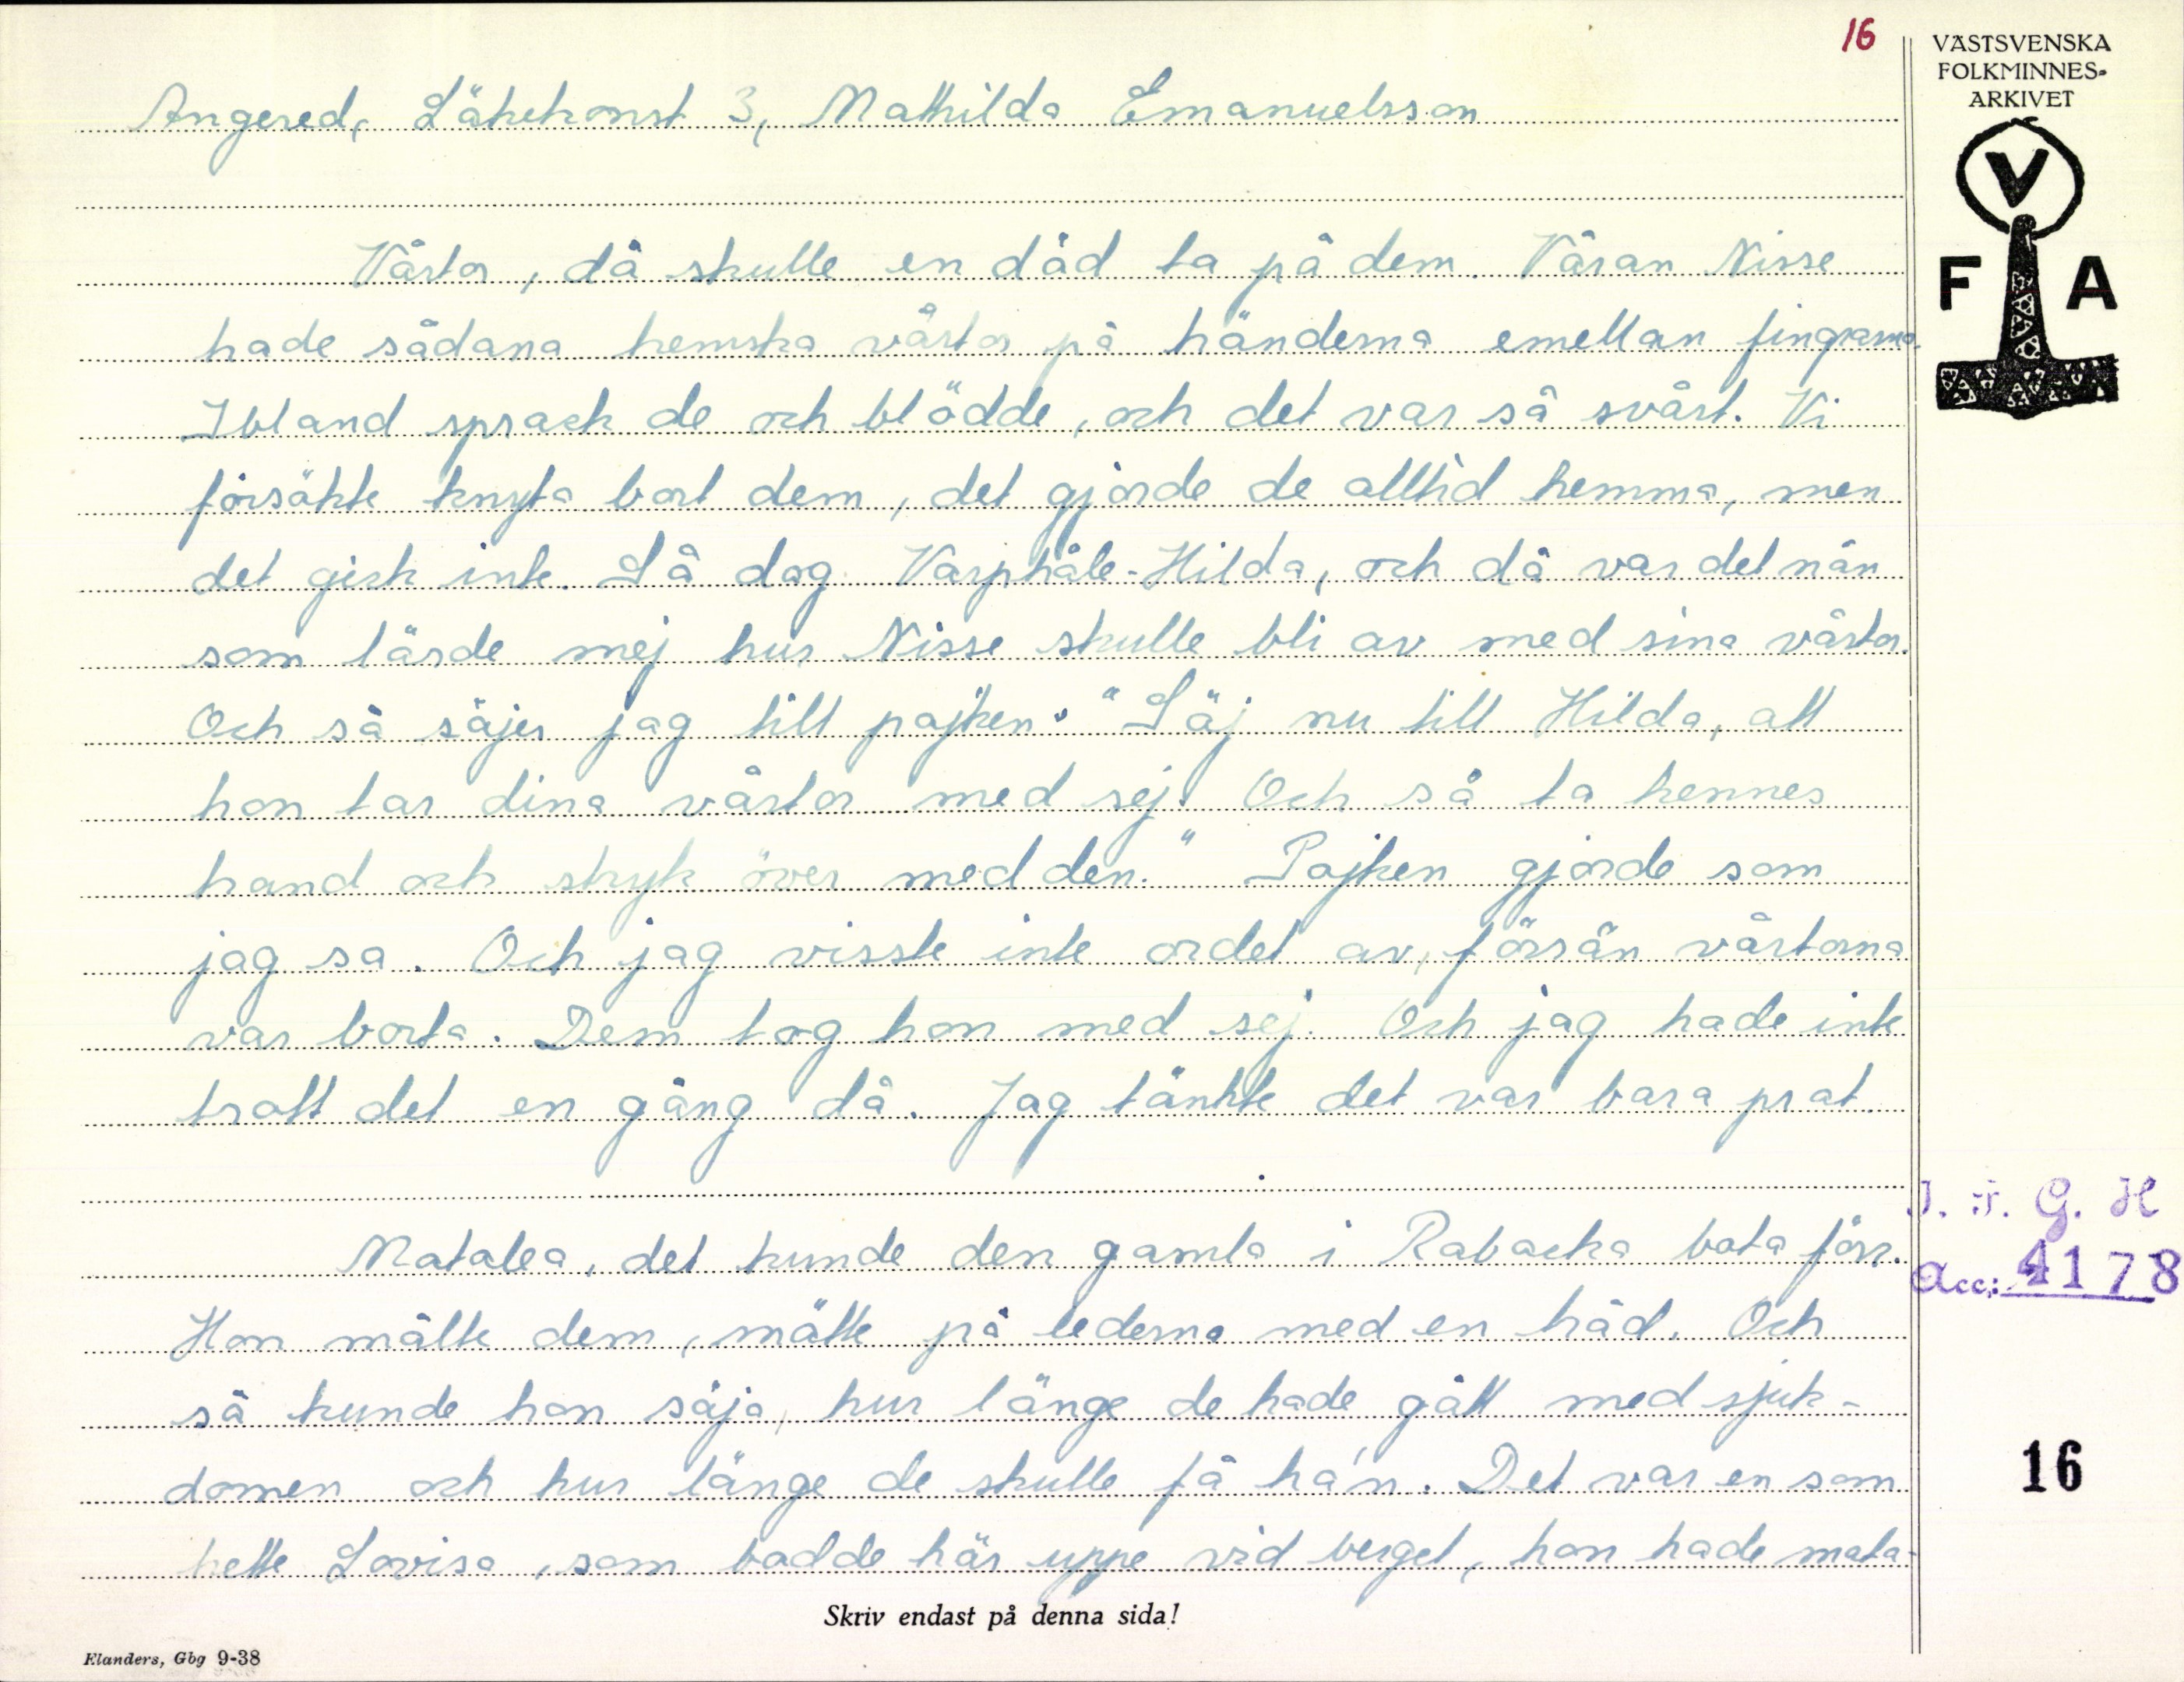 16
VÄSTSVENSKA
FOLKMINNES-
ARKIVET
V
F A
Angered, Läkekonst 3, Mathilda Emanuelsson
Vårtor, då skulle en död ta på dem. Våran Nisse
hade sådana hemska vårtor på händerna emellan fingrarna.
Ibland sprack de och blödde, och det var så svårt. Vi
försökte knyta bort dem, det gjorde de alltid hemma, men
det gick inte. Så dog Varphåle-Hilda, och då var det nån
som lärde mej hur Nisse skulle bli av med sina vårtor.
Och så säjer jag till pojken: "Säj nu till Hilda, att
hon tar dina vårtor med sej! Och så ta hennes
hand och stryk över med den." Pojken gjorde som
jag sa. Och jag visste inte ordet av, förrän vårtorna
var borta. Dem tog hon med sej. Och jag hade inte
trott det en gång då. Jag tänkte det var bara prat.
Matalea, det kunde den gamla i Rabacka bota förr.
Hon mätte dem, mätte på lederna med en tråd. Och
så kunde hon säja, hur länge de hade gått med sjuk-
domen och hur länge de skulle få ha'n. Det var en som
hette Lovisa, som bodde här uppe vid berget, hon hade mata-
Skriv endast på denna sida!
Elanders, Gbg 9-38
I. F. G. H
Acc: 4178
16